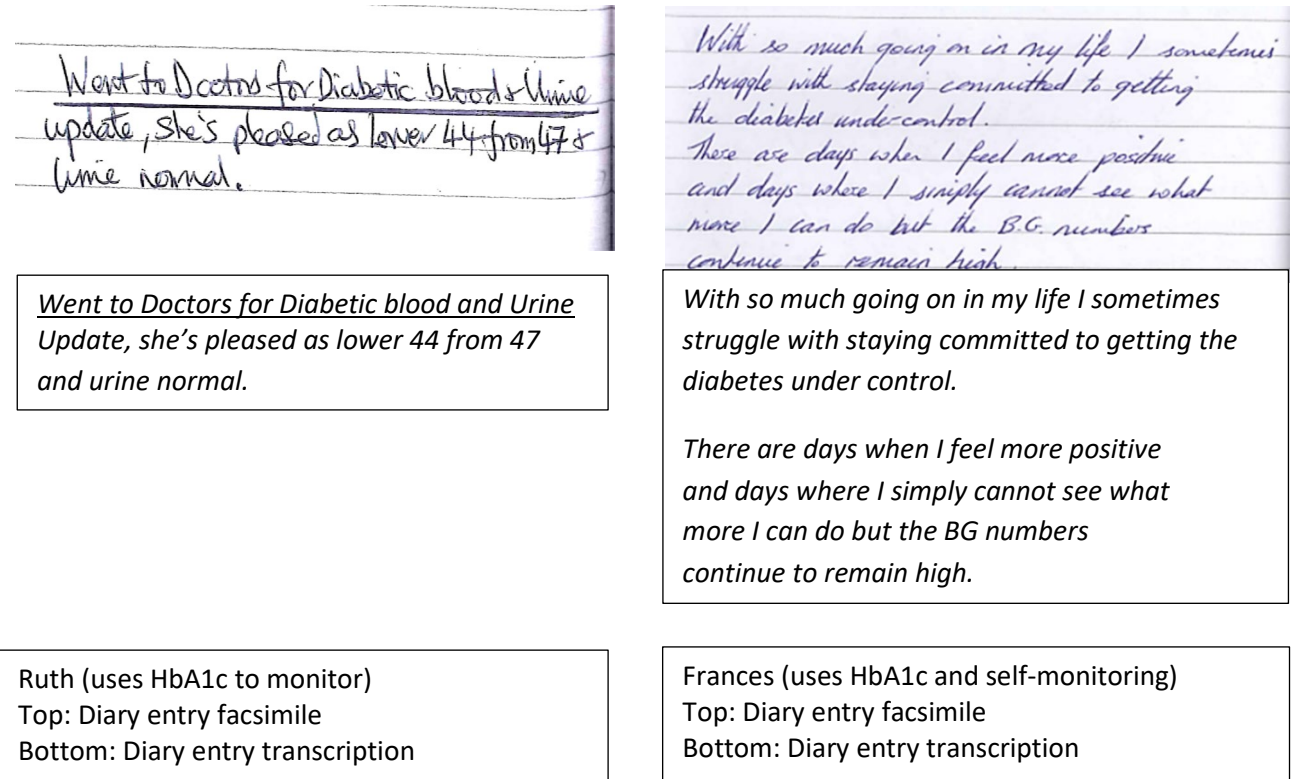 Went to Doctors for Diabetic blood & Urine
update, she's pleased as lower 44 from 47 &
Urine normal.
Went to Doctors for Diabetic blood and Urine
Update, she's pleased as lower 44 from 47
and urine normal.
Ruth (uses HbA1c to monitor)
Top: Diary entry facsimile
Bottom: Diary entry transcription
With so much going on in my life I sometimes
struggle with staying committed to getting
the diabetes under-control.
There are days when I feel more positive
and days where I simply cannot see what
more I can do but the B.G. numbers
continue to remain high.
With so much going on in my life I sometimes
struggle with staying committed to getting the
diabetes under control.
There are days when I feel more positive
and days where I simply cannot see what
more I can do but the BG numbers
continue to remain high.
Frances (uses HbA1c and self-monitoring)
Top: Diary entry facsimile
Bottom: Diary entry transcription